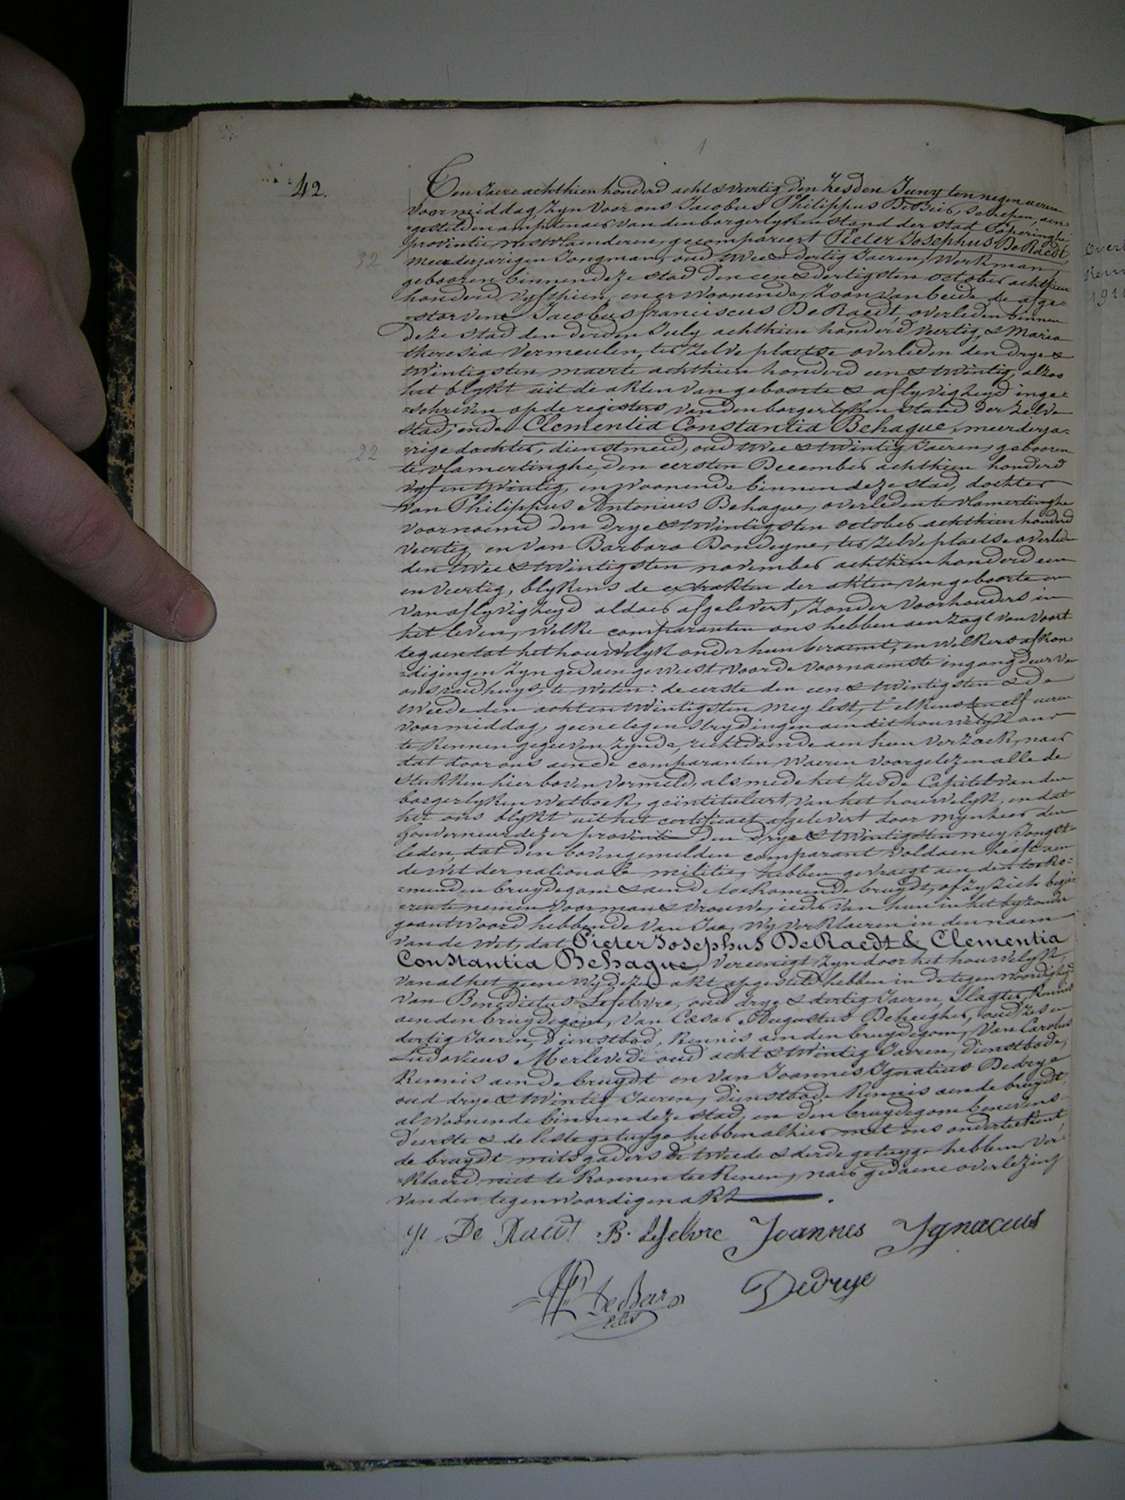 42.
Ten Jaere achthien honderd acht & veertig den zesden Juny ten negen ueren
voormiddag, zyn voor ons Jacobus Philippus De Bei, schepen, aen-
gestelden amptenaer van den borgerlyken stand der stad Poperinghe
provintie westvlaenderen, gecompareert Pieter Josephus De Raedt
32
meerderjarigen Jongman, oud twee & dertig Jaeren, werkman,
gebooren binnen deze stad den een & dertigsten october achthien
honderd vyfthien, en er woonende, zoon van beide de afge-
storvene Jacobus franciscus De Raedt, overleden binnen
deze stad den derden July achthien honderd veertig, & Maria
theresia Vermeulen, ter zelve plaetse overleden den drye &
twintigsten maerte achthien honderd een & twintig, alzoo
het blykt uit de akten van geboorte & aflyvigheyd inge-
schreven op de registers van den borgerlyken stand der zelve
stad; ende Clementia Constantia Behague, meerderja-
22
rige dochter, dienstmeid, oud twee & twintig Jaeren, gebooren
te vlamertinghe, den eersten December achthien honderd
vyf en twintig, en woonende binnen deze stad, dochter
van Philippus Antonius Behague, overleden te vlamertinghe
voornoemd den drye & twintigsten october achthien honderd
veertig, en van Barbara Dondeyne, ter zelve plaetse overle-
den twee & twintigsten november achthien honderd een
en veertig, blykens de extrakten der akten van geboorte en
van aflyvigheyd aldaer afgelevert, zonder voorhouders in
het leven, welke comparanten ons hebben aenzogt van voort
te gaen tot het houwelyk onder hun beraemt, en welkers afkon-
digingen zyn gedaen geweest voor de voornaemste ingang deur van
ons raedhuys, te weten: de eerste den een & twintigsten & de
tweede den achten twintigsten mey lest, t'elkens ten elf ueren
voormiddag, geene tegenstrydingen aen dit houwelyk ons
te kennen gegeven zynde, rechtdoende aen hun verzoek, naer
dat door ons aen de comparanten waeren voorgelezen alle de
stukken hier boven vermeld, als mede het zesde Capittel van den
borgerlyken wetboek, geintituleert, van het houwelyk, en dat
het ons blykt uit het certificaet afgelevert door mynheer den
Gouverneur dezer provintie den drye & twintigsten mey jongst-
leden, dat den bovengemelden comparant voldaen heeft aen
de wet der nationale militie, hebben gevraegt aen den toeko-
menden bruydegom & aen de toekomende bruydt, of zy zich begee-
ren te nemen voor man & vrouwe, ieder van hun in het byzonder
geantwoord hebbende van Jae, wy verklaeren in den naem
van de wet, dat Pieter Josephus De Raedt & Clementia
Constantia Behague, vereenigt zyn door het houwelyk,
van al het geene wy dezen akt opgesteld hebben in de tegenwoordigheyd
van Benedictus Lefebvre, oud drye & dertig Jaeren, slagter, kennis
aen den bruydegom, van Cæsar Augustus Beheeghe, oud zes en
dertig Jaeren, dienstbode, kennis aen den bruydegom, van Carolus
Ludovicus Merlevede oud acht & twintig Jaeren, dienstbode,
kennis aen de bruydt en van Joannes Ignatius Dedrye
oud drye & twintig Jaeren, dienstbode kennis aen de bruydt;
al woonende binnen deze stad, en den bruydegom benevens
d'eerste & de leste getuyge hebben alhier met ons onderteekent
de bruydt mitsgaders de tweede & derde getuyge hebben ver-
klaerd niet te konnen teekenen, naer gedaene overlezing
van den tegenwoordigen akt.
De Raedt B. Lefebvre Joannes Ygnacius
Dedrye